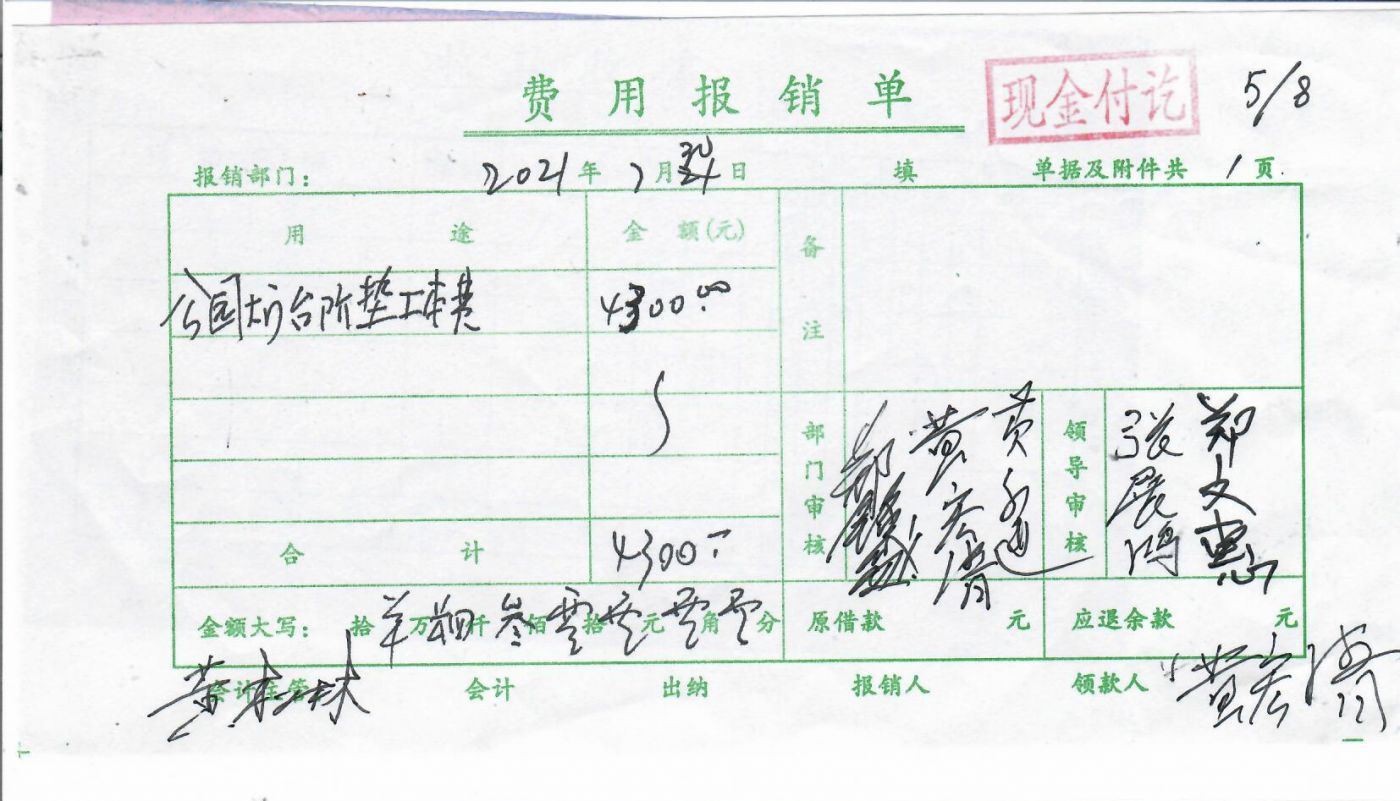 费用报销单
现金付讫
5/8
报销部门： 2021年 7月 日 填 单据及附件共 1 页
用途 金额(元) 备注
公园 台阶垫工本费 4300.00
合计 4300.-
部门审核 黄宏济 领导审核 张展鸿 郑文惠
金额大写： 拾 万 肆仟 叁佰 零拾 零元 零角 零分 原借款 元 应退余款 元
会计主管 会计 出纳 报销人 领款人 黄宏济